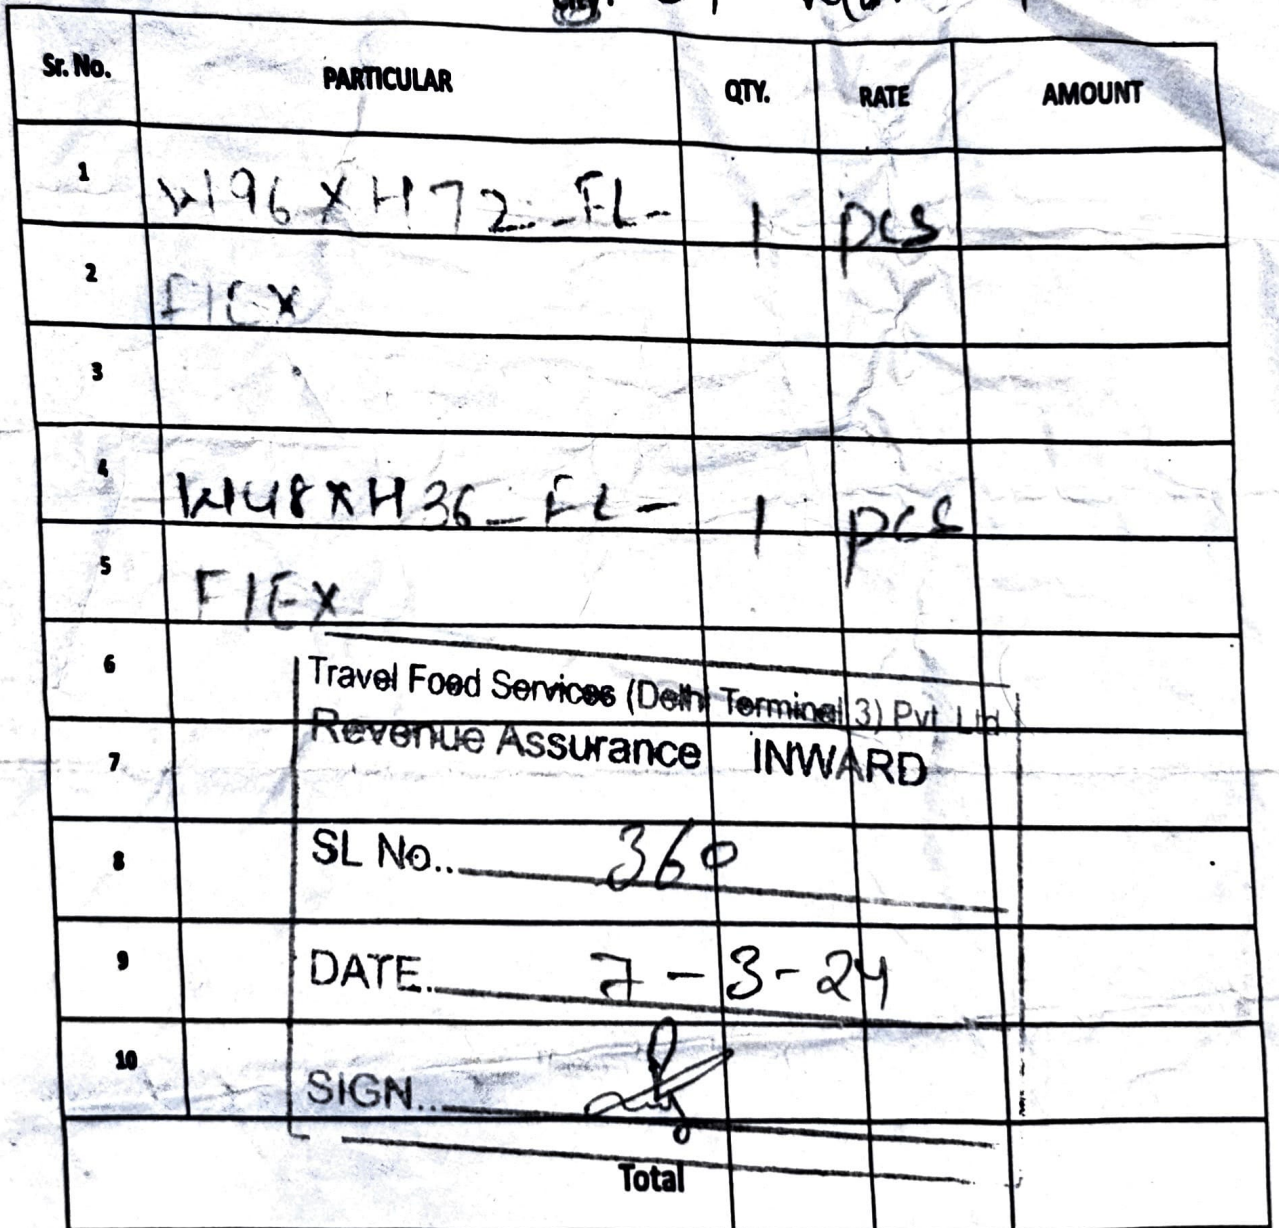 Sr. No. PARTICULAR QTY. RATE AMOUNT
1 W96 X H72 - FL - 1 pcs
2 FlEX
3
4 W48 X H36 - FL - 1 pcs
5 FlEX
6 Travel Food Services (Delhi Terminal 3) Pvt. Ltd
7 Revenue Assurance INWARD
8 SL No.. 360
9 DATE.. 7-3-24
10 SIGN...
Total